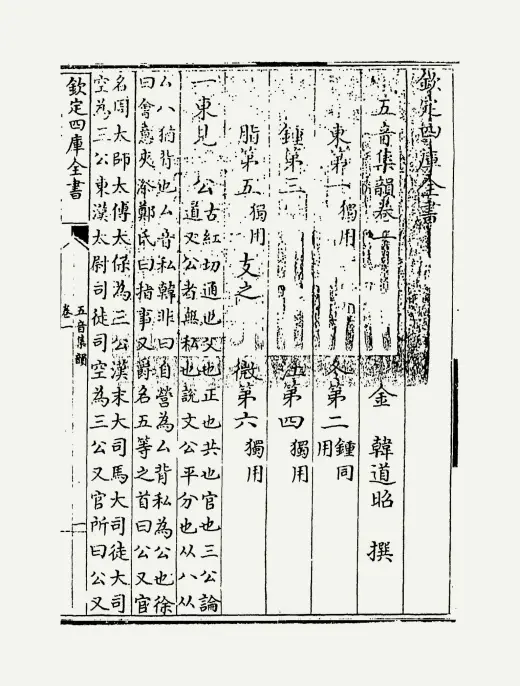 欽定四庫全書
五音集韻卷一
金 韓道昭 撰
東第一獨用 冬第二鍾同用
鍾第三 江第四獨用
脂第五獨用 支之 微第六獨用
一東見 公古紅切通也父也正也共也官也三公論
道又公者無私也說文公平分也从八从
厶八猶背也厶音私韓非曰自營為厶背私為公也徐
曰會意夾漈鄭氏曰指事又爵名五等之首曰公又官
名周太師太傅太保為三公漢末大司馬大司徒大司
空為三公東漢太尉司徒司空為三公又官所曰公又
欽定四庫全書
五音集韻
卷一
一